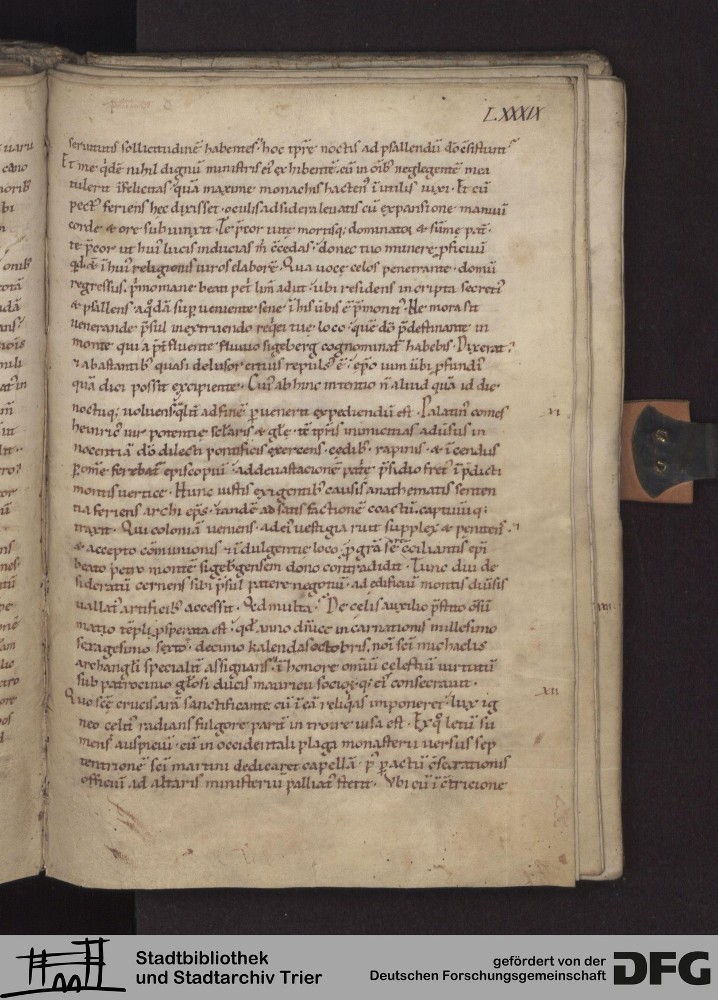 LXXXIX
seruitutis sollicitudinē habentes. hoc tp̄re noctis ad psallendū
Et me q̇dē nihil dignū ministris ei ex hibentē. cū in oīb; neglegentē mea
tulerit īfelicitas. quā maxime monachis hacten īutilis uixi. Et cū
pect feriens hec dixisset. oculis ad sidera leuatis cū expansione manuū
corde & ore sub iunxit. Te p̄cor uite mortisq; dominator & sūme pat̄.
te p̄cor ut hui lucis inducias m̄ c̄cedas. donec tuo munere p̱ficuū
religionis uiros elaborē. Qua uoce celos penetrante. domū
regressus. p̄momane beati pet̄ limina adiit. ubi residens in cripta secreti
& psallens. a q̇dā sup̱ueniente sene. ī his ūbis ē p̄monit. Ne mora sit
uenerande p̄sul in extruendo req̇ei tue loco. quē dō p̄destinante in
monte qui a p̄t fluente fluuio sigeberg cognominat habebis. Dixerat.
& ab astantib; quasi delusor citius repuls ē. ep̄o uim ūbi p̱fundi
quā dici possit excipiente. Cui ab hinc intentio n̄ aliud quā id die
noctuq; uoluens. ad finē p̱uenerit expediendū est. Palatin comes
VI
heinric uir potentie sclaris & gle. tē tp̄ris inimicitias aduīsus in
nocentiā dō dilecti pontificis exercens. cedib; rapinis. & īcendiis
ferebat episcopiū. ad deuastationē patrie p̄sidio fret p̄dicti
montis uertice. Hunc iustis exigentib; causis anathematis senten
tia feriens archi ep̄s. tandē ad satisfactionē coactū. captiuūq;
traxit. Qui coloniā ueniens. ad ei uestigia ruit supplex & penitens.
& accepto cōmunionis & īdulgentie loco. p̱ gra se c̄ciliantis ep̄i
beato petro montē sigebgensem dono contradidit. Tunc diu de
sideratū cernens sibi p̄sul patere negotiū. ad edificiū montis diuīsis
uallat artificib; accessit. Sed multa. De celis auxilio p̄stito
matio tēpli p̱sperata est. qd anno dn̄ice incarnationis millesimo
XVII
sexagesimo sexto. decimo kalendas octobris. noī sc̄i michaelis
archangli specialit̄ assignans. ī honore omniū celestiū uirtutū
sub patrocinio glōsi ducis mauricii socioꝝq; ei consecrauit.
XII
Quo sc̄e crucis arā sanctificante cū ī eā reliq̇as imponeret. lux ig
neo celit radians fulgore partī in troire uisa est. Exq̇ letū su
mens auspiciū. cū in occidentali plaga monasterii uersus sep
tentrionē sc̄i martini dedicaret capellā. p̄ p̱actū c̄secrationis
officiū ad altaris ministeriū palliat stetit. Vbi cū ī c̄tricione
Stadtbibliothek
und Stadtarchiv Trier
gefördert von der
Deutschen Forschungsgemeinschaft
DFG